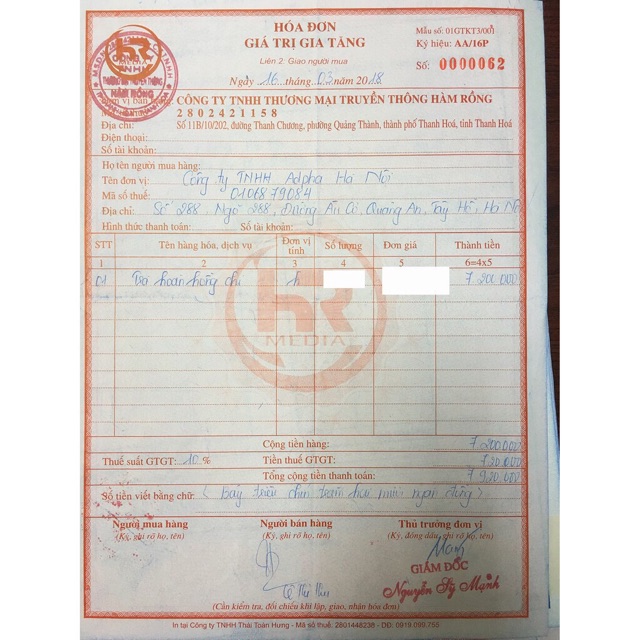 HÓA ĐƠN
GIÁ TRỊ GIA TĂNG
Liên 2: Giao người mua
Ngày 16 tháng 03 năm 2018
Mẫu số: 01GTKT3/001
Ký hiệu: AA/16P
Số: 0000062
HR
MEDIA
TNHH
HÀM RỒNG
Đơn vị bán CÔNG TY TNHH THƯƠNG MẠI TRUYỀN THÔNG HÀM RỒNG
2802421158
Địa chỉ: Số 11B/10/202, đường Thanh Chương, phường Quảng Thành, thành phố Thanh Hoá, tỉnh Thanh Hoá
Điện thoại:
Số tài khoản:
Họ tên người mua hàng:
Tên đơn vị: Công ty TNHH Adpha Hà Nội
Mã số thuế: 0106879084
Địa chỉ: Số 288, Ngõ 288, Đường Âu Cơ, Quảng An, Tây Hồ, Hà Nội
Hình thức thanh toán: Số tài khoản:
STT Tên hàng hóa, dịch vụ Đơn vị tính Số lượng Đơn giá Thành tiền
1 2 3 4 5 6=4x5
01 Trà hoàn hồng chi h 7 200 000
HR
MEDIA
Cộng tiền hàng: 7 200 000
Thuế suất GTGT: 10 % Tiền thuế GTGT: 720.000
Tổng cộng tiền thanh toán: 7 920.000
Số tiền viết bằng chữ: ( Bảy triệu chín trăm hai mươi ngàn đồng )
Người mua hàng Người bán hàng Thủ trưởng đơn vị
(Ký, ghi rõ họ, tên) (Ký, ghi rõ họ, tên) (Ký, đóng dấu, ghi rõ họ, tên)
GIÁM ĐỐC
Lê Thị Thu Nguyễn Sỹ Mạnh
(Cần kiểm tra, đối chiếu khi lập, giao, nhận hóa đơn)
In tại Công ty TNHH Thái Toàn Hưng - Mã số thuế: 2801448238 - DĐ: 0919.099.755